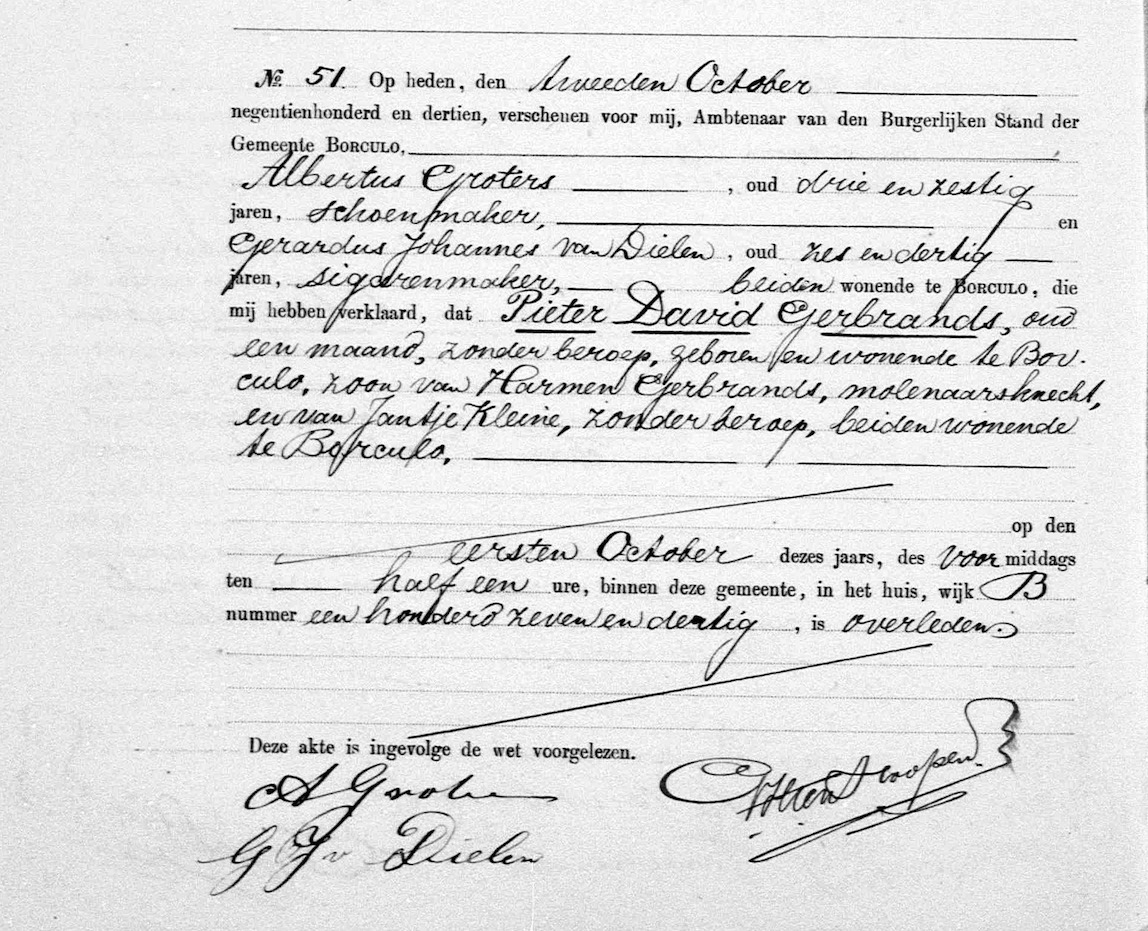 № 51. Op heden, den tweeden October
negentienhonderd en dertien, verschenen voor mij, Ambtenaar van den Burgerlijken Stand der
Gemeente BORCULO,
Albertus Groters, oud drie en zestig
jaren, schoenmaker, en
Gerardus Johannes van Dielen, oud zes en dertig
jaren, sigarenmaker, beiden wonende te BORCULO, die
mij hebben verklaard, dat Pieter David Gerbrands, oud
een maand, zonder beroep, geboren en wonende te Bor-
culo, zoon van Harmen Gerbrands, molenaarsknecht,
en van Jantje Kleine, zonder beroep, beiden wonende
te Borculo,
op den
eersten October dezes jaars, des voormiddags
ten half een ure, binnen deze gemeente, in het huis, wijk B
nummer een honderd zeven en dertig, is overleden.
Deze akte is ingevolge de wet voorgelezen.
A
G J v Dielen